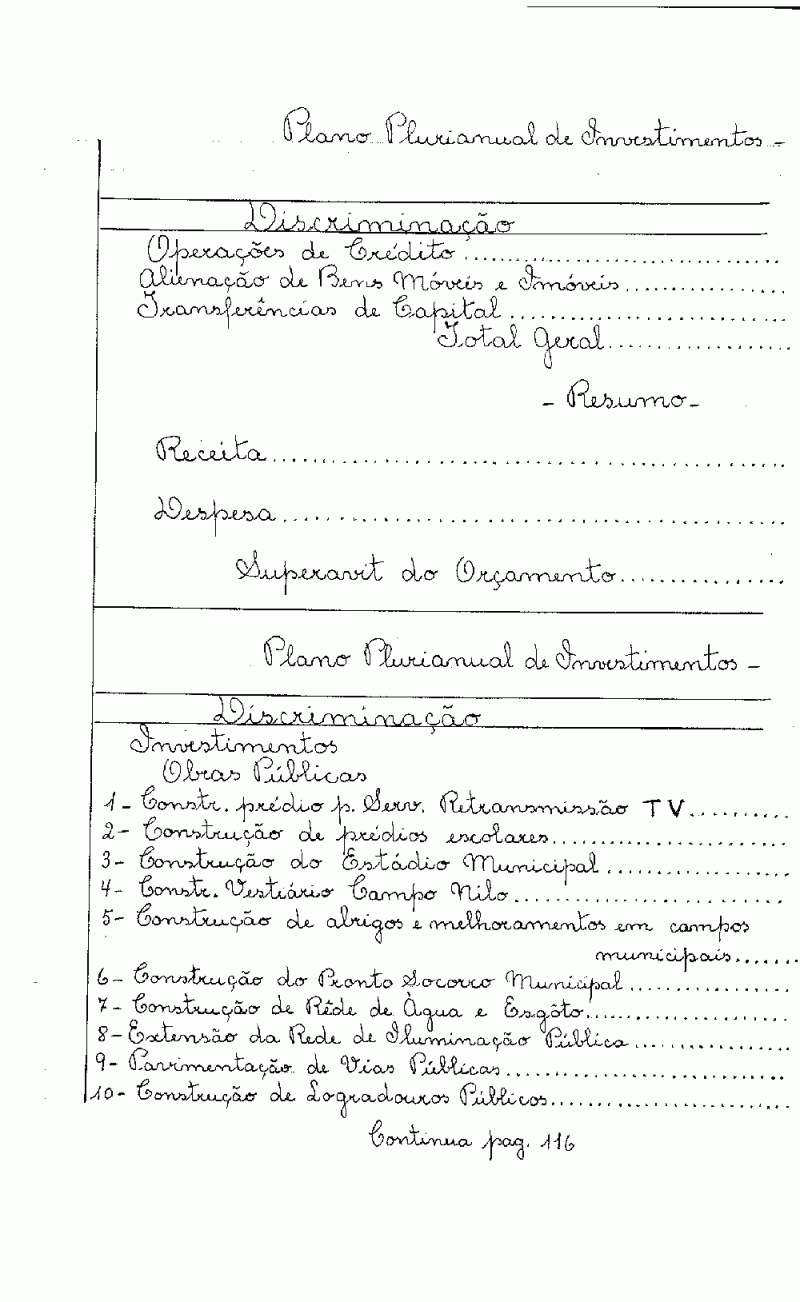 Plano Plurianual de Investimentos -
Discriminação
Operações de Crédito..............................
Alienação de Bens Móveis e Imóveis...............
Transferências de Capital..........................
Total Geral.................
- Resumo -
Receita.............................................
Despesa............................................
Superavit do Orçamento...............
Plano Plurianual de Investimentos -
Discriminação
Investimentos
Obras Públicas
1- Constr. prédio p. Serv. Retransmissão TV..........
2- Construção de prédios escolares.....................
3- Construção do Estádio Municipal................
4- Constr. Vestiário Campo Nilo........................
5- Construção de abrigos e melhoramentos em campos
municipais.......
6- Construção do Pronto Socorro Municipal..............
7- Construção de Rêde de Àgua e Esgôto..................
8- Extensão da Rede de Iluminação Pública..............
9- Pavimentação de Vias Públicas.........................
10- Construção de Logradouros Públicos.....................
Continua pag. 116